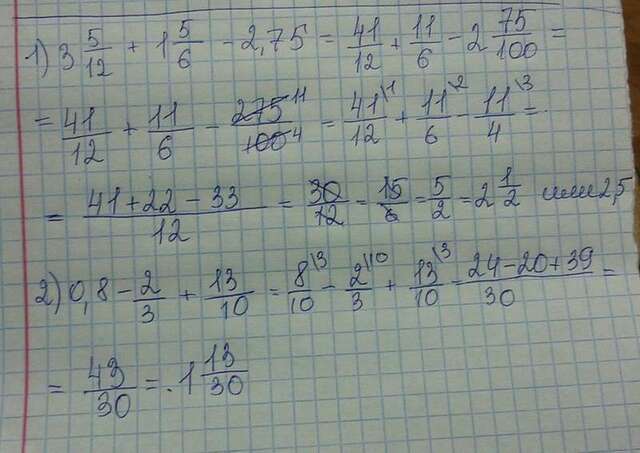 1) 3 5/12 + 1 5/6 - 2,75 = 41/12 + 11/6 - 2 75/100 =
= 41/12 + 11/6 - 275/100 11/4 = 41\1/12 + 11\2/6 - 11\3/4 =
= (41+22-33)/12 = 30/12 = 15/6 = 5/2 = 2 1/2 или 2,5
2) 0,8 - 2/3 + 13/10 = 8\3/10 - 2\10/3 + 13\3/10 = (24-20+39)/30 =
= 43/30 = 1 13/30